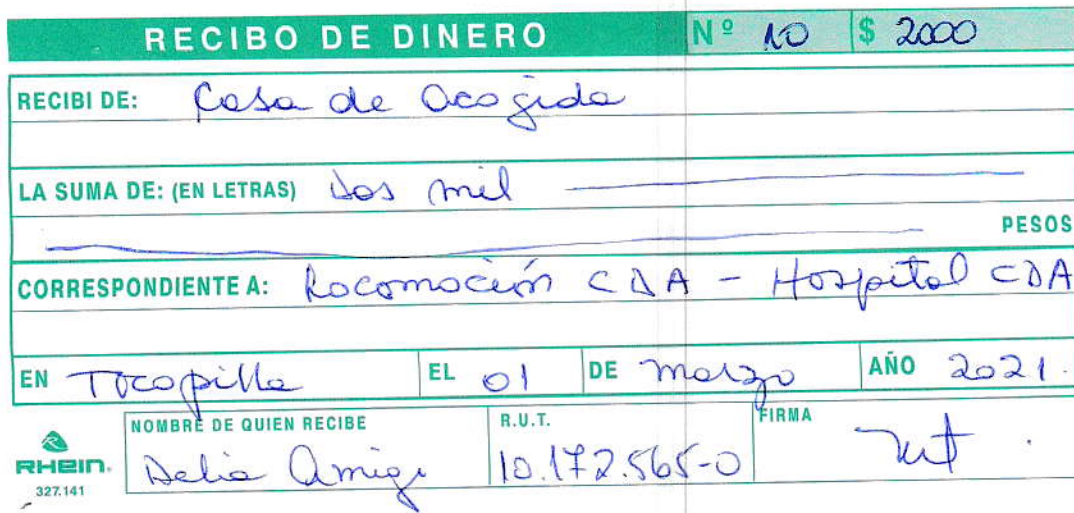 RECIBO DE DINERO Nº 10 $ 2000
RECIBI DE: Casa de Acogida
LA SUMA DE: (EN LETRAS) Dos mil
PESOS
CORRESPONDIENTE A: Locomoción CDA - Hospital CDA
EN Tocopilla EL 01 DE Marzo AÑO 2021.
NOMBRE DE QUIEN RECIBE R.U.T. FIRMA
RHEIN. Delia Amigi 10.172.565-0
327.141